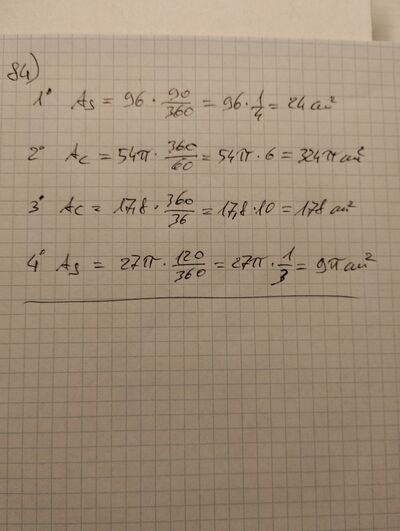 84)
1° As = 96 · 90/360 = 96 · 1/4 = 24 cm²
2° Ac = 54π · 360/60 = 54π · 6 = 324π cm²
3° Ac = 17,8 · 360/36 = 17,8 · 10 = 178 cm²
4° As = 27π · 120/360 = 27π · 1/3 = 9π cm²